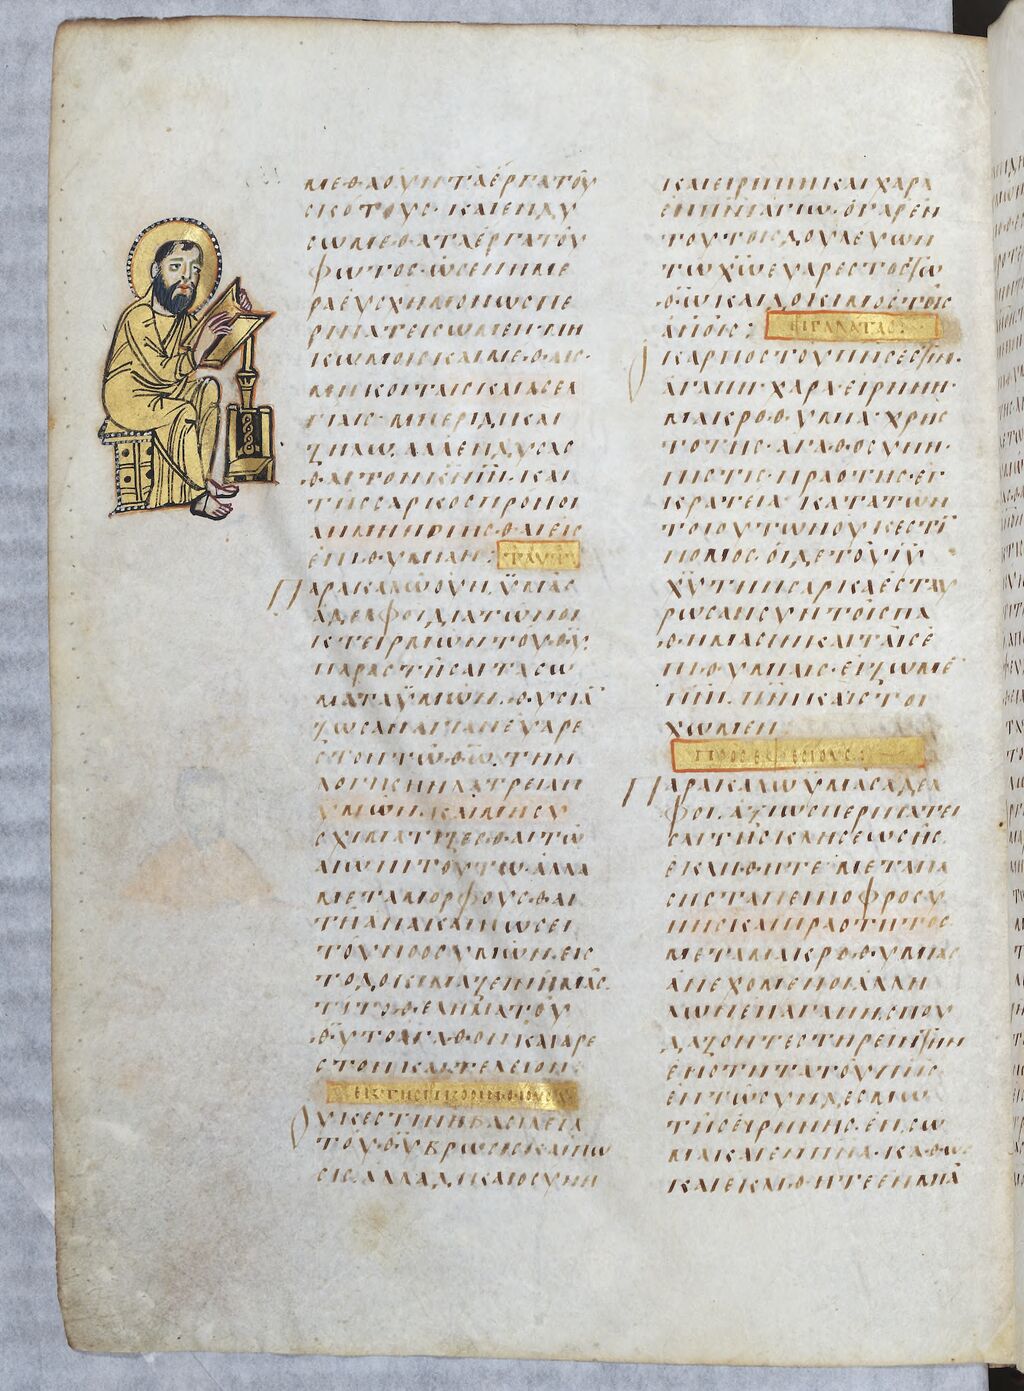 ΜΕΘΑΟΥΝΤΑΕΡΓΑΤΟΥ
ΣΚΟΤΟΥΣ· ΚΑΙΕΝΔΥ
ΣΩΜΕΘΑΤΑΕΡΓΑΤΟΥ
ΦΩΤΟΣ· ΩΣΕΝΗΜΕ
ΡΑΕΥΣΧΗΜΟΝΩΣΠΕ
ΡΙΠΑΤΕΙΣΩΜΕΝ· ΜΗ
ΚΩΜΟΙΣΚΑΙΜΕΘΑΙΣ·
ΜΗΚΟΙΤΑΙΣΚΑΙΑΣΕΛ
ΓΙΑΙΣ· ΜΗΕΡΙΔΙΚΑΙ
ΖΗΛΩ, ΑΛΛΕΝΔΥΣΑΣ
ΘΑΙΤΟΝΚΝΙΝ· ΚΑΙ
ΤΗΣΣΑΡΚΟΣΠΡΟΝΟΙ
ΑΝΜΗΠΟΙΗΣΘΑΙΕΙΣ
ΕΠΙΘΥΜΙΑΝ:
ΠΑΡΑΚΑΛΩΟΥΝ, ΥΜΑΣ
ΑΔΕΛΦΟΙΔΙΑΤΩΝΟΙ
ΚΤΕΙΡΜΩΝΤΟΥΘΥ·
ΠΑΡΑΣΤΗΣΑΙΤΑΣΩ
ΜΑΤΑΥΜΩΝ, ΘΥΣΙΑ
ΖΩΣΑΝΑΓΙΑΝΕΥΑΡΕ
ΣΤΟΝΤΩΘΩ. ΤΗΝ
ΛΟΓΙΚΗΝΛΑΤΡΕΙΑΝ
ΥΜΩΝ. ΚΑΙΜΗΣΥ
ΣΧΗΜΑΤΙΖΕΣΘΑΙΤΩ
ΑΙΩΝΙΤΟΥΤΩ· ΑΛΛΑ
ΜΕΤΑΜΟΡΦΟΥΣΘΑΙ
ΤΗΑΝΑΚΑΙΝΩΣΕΙ
ΤΟΥΝΟΟΣΥΜΩΝ. ΕΙΣ
ΤΟΔΟΚΙΜΑΖΕΙΝΥΜΑΣ·
ΤΙΤΟΘΕΛΗΜΑΤΟΥ
ΘΥΤΟΑΓΑΘΟΝΚΑΙΑΡΕ
ΣΤΟΝΚΑΙΤΕΛΕΙΟΝ·
ΟΥΚΕΣΤΙΝΗΒΑΣΙΛΕΙΑ
ΤΟΥΘΥΒΡΩΣΙΣΚΑΙΠΩ
ΣΙΣ. ΑΛΛΑΔΙΚΑΙΟΣΥΝΗ
ΚΑΙΕΙΡΗΝΗΚΑΙΧΑΡΑ
ΕΝΠΝΙΑΓΙΩ. ΟΓΑΡΕΝ
ΤΟΥΤΟΙΣΔΟΥΛΕΥΩΝ
ΤΩΧΩΕΥΑΡΕΣΤΟΣΤΩ
ΘΩΚΑΙΔΟΚΙΜΟΣΤΟΙΣ
ΑΝΟΙΣ:
ΚΑΡΠΟΣΤΟΥΠΝΣΕΣΤΙΝ·
ΑΓΑΠΗ· ΧΑΡΑ· ΕΙΡΗΝΗ·
ΜΑΚΡΟΘΥΜΙΑ· ΧΡΗΣ
ΤΟΤΗΣ· ΑΓΑΘΟΣΥΝΗ·
ΠΙΣΤΙΣ· ΠΡΑΟΤΗΣ· ΕΓ
ΚΡΑΤΕΙΑ· ΚΑΤΑΤΩΝ
ΤΟΙΟΥΤΩΝΟΥΚΕΣΤΙ
ΝΟΜΟΣ. ΟΙΔΕΤΟΥΙΥ
ΧΥΤΗΝΣΑΡΚΑΕΣΤΑΥ
ΡΩΣΑΝΣΥΝΤΟΙΣΠΑ
ΘΗΜΑΣΙΝΚΑΙΤΑΙΣΕ
ΠΙΘΥΜΙΑΙΣ· ΕΙΖΩΜΕ
ΠΝΙ. ΠΝΙΚΑΙΣΤΟΙ
ΧΩΜΕΝ
ΠΡΟΣΕΦΕΣΙΟΥΣ:
ΠΑΡΑΚΑΛΩΥΜΑΣΑΔΕΛ
ΦΟΙ. ΑΞΙΩΣΠΕΡΙΠΑΤΕΙ
ΣΑΙΤΗΣΚΛΗΣΕΩΣΗΣ
ΕΚΛΗΘΗΤΕ· ΜΕΤΑΠΑ
ΣΗΣΤΑΠΕΙΝΟΦΡΟΣΥ
ΝΗΣΚΑΙΠΡΑΟΤΗΤΟΣ
ΜΕΤΑΜΑΚΡΟΘΥΜΙΑΣ
ΑΝΕΧΟΜΕΝΟΙΑΛΛΗ
ΛΩΝΕΝΑΓΑΠΗ· ΣΠΟΥ
ΔΑΖΟΝΤΕΣΤΗΡΕΙΝΤΗΝ
ΕΝΟΤΗΤΑΤΟΥΠΝΣ
ΕΝΤΩΣΥΝΔΕΣΜΩ
ΤΗΣΕΙΡΗΝΗΣ. ΕΝΣΩ
ΜΑΚΑΙΕΝΠΝΑ· ΚΑΘΩΣ
ΚΑΙΕΚΛΗΘΗΤΕΕΝΜΙΑ